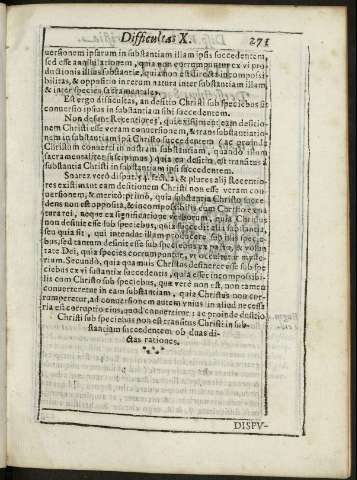 Difficultas X. 271
uersionem ipsarum in substantiam illam ipsis succedentem,
sed esse annihilationem, quia non corrumpuntur ex vi pro
ductionis illius substantiæ, quia non est directa incompossi-
bilitas, & oppositio in rerum natura inter substantiam illam,
& inter species sacramentales.
Est ergo difficultas, an desitio Christi sub speciebus sit
conuersio ipsius in substantiam sibi succedentem.
Non desunt Recentiores, qui existiment eam desitio-
nem Christi esse veram conuersionem, & transubstantiatio-
nem in substantiam ipsi Christo succedentem (ac proinde
Christum conuerti in nostram substantiam, quando illum
sacramentaliter suscipimus) quia ea desitio est transitus à
substantia Christi in substantiam ipsi succedentem.
Soarez verò disput. 54. sect. 2. & plures alij Recentio-
res existimant eam desitionem Christi non esse veram con-
uersionem, & meritò: primò, quia substantia Christo succe-
dens non est opposita, & incompossibilis cum Christo ex na
tura rei, neque ex significatione verborum, quia Christus
non desinit esse sub speciebus, quia succedit alia substantia,
seu quia sit, qui intendat illam producere sub illis specie-
bus, sed tantum desinit esse sub speciebus ex pacto, & volun
tate Dei, quia species corrumpuntur, vt occultetur myste-
rium. Secundò, quia quamuis Christus desineret esse sub spe
ciebus ex vi substantiæ succedentis, quia esset incompossibi-
lis cum Christo sub speciebus, quæ verè non est, non tamen
conuerteretur in eam substantiam, quia Christus non cor-
rumperetur, ad conuersionem autem vnius in aliud necessa
ria est corruptio eius, quod conuertitur: ac proinde desitio
Christi sub speciebus non est transitus Christi in sub-
stantiam succedentem ob duas di-
ctas rationes.
DISPV-